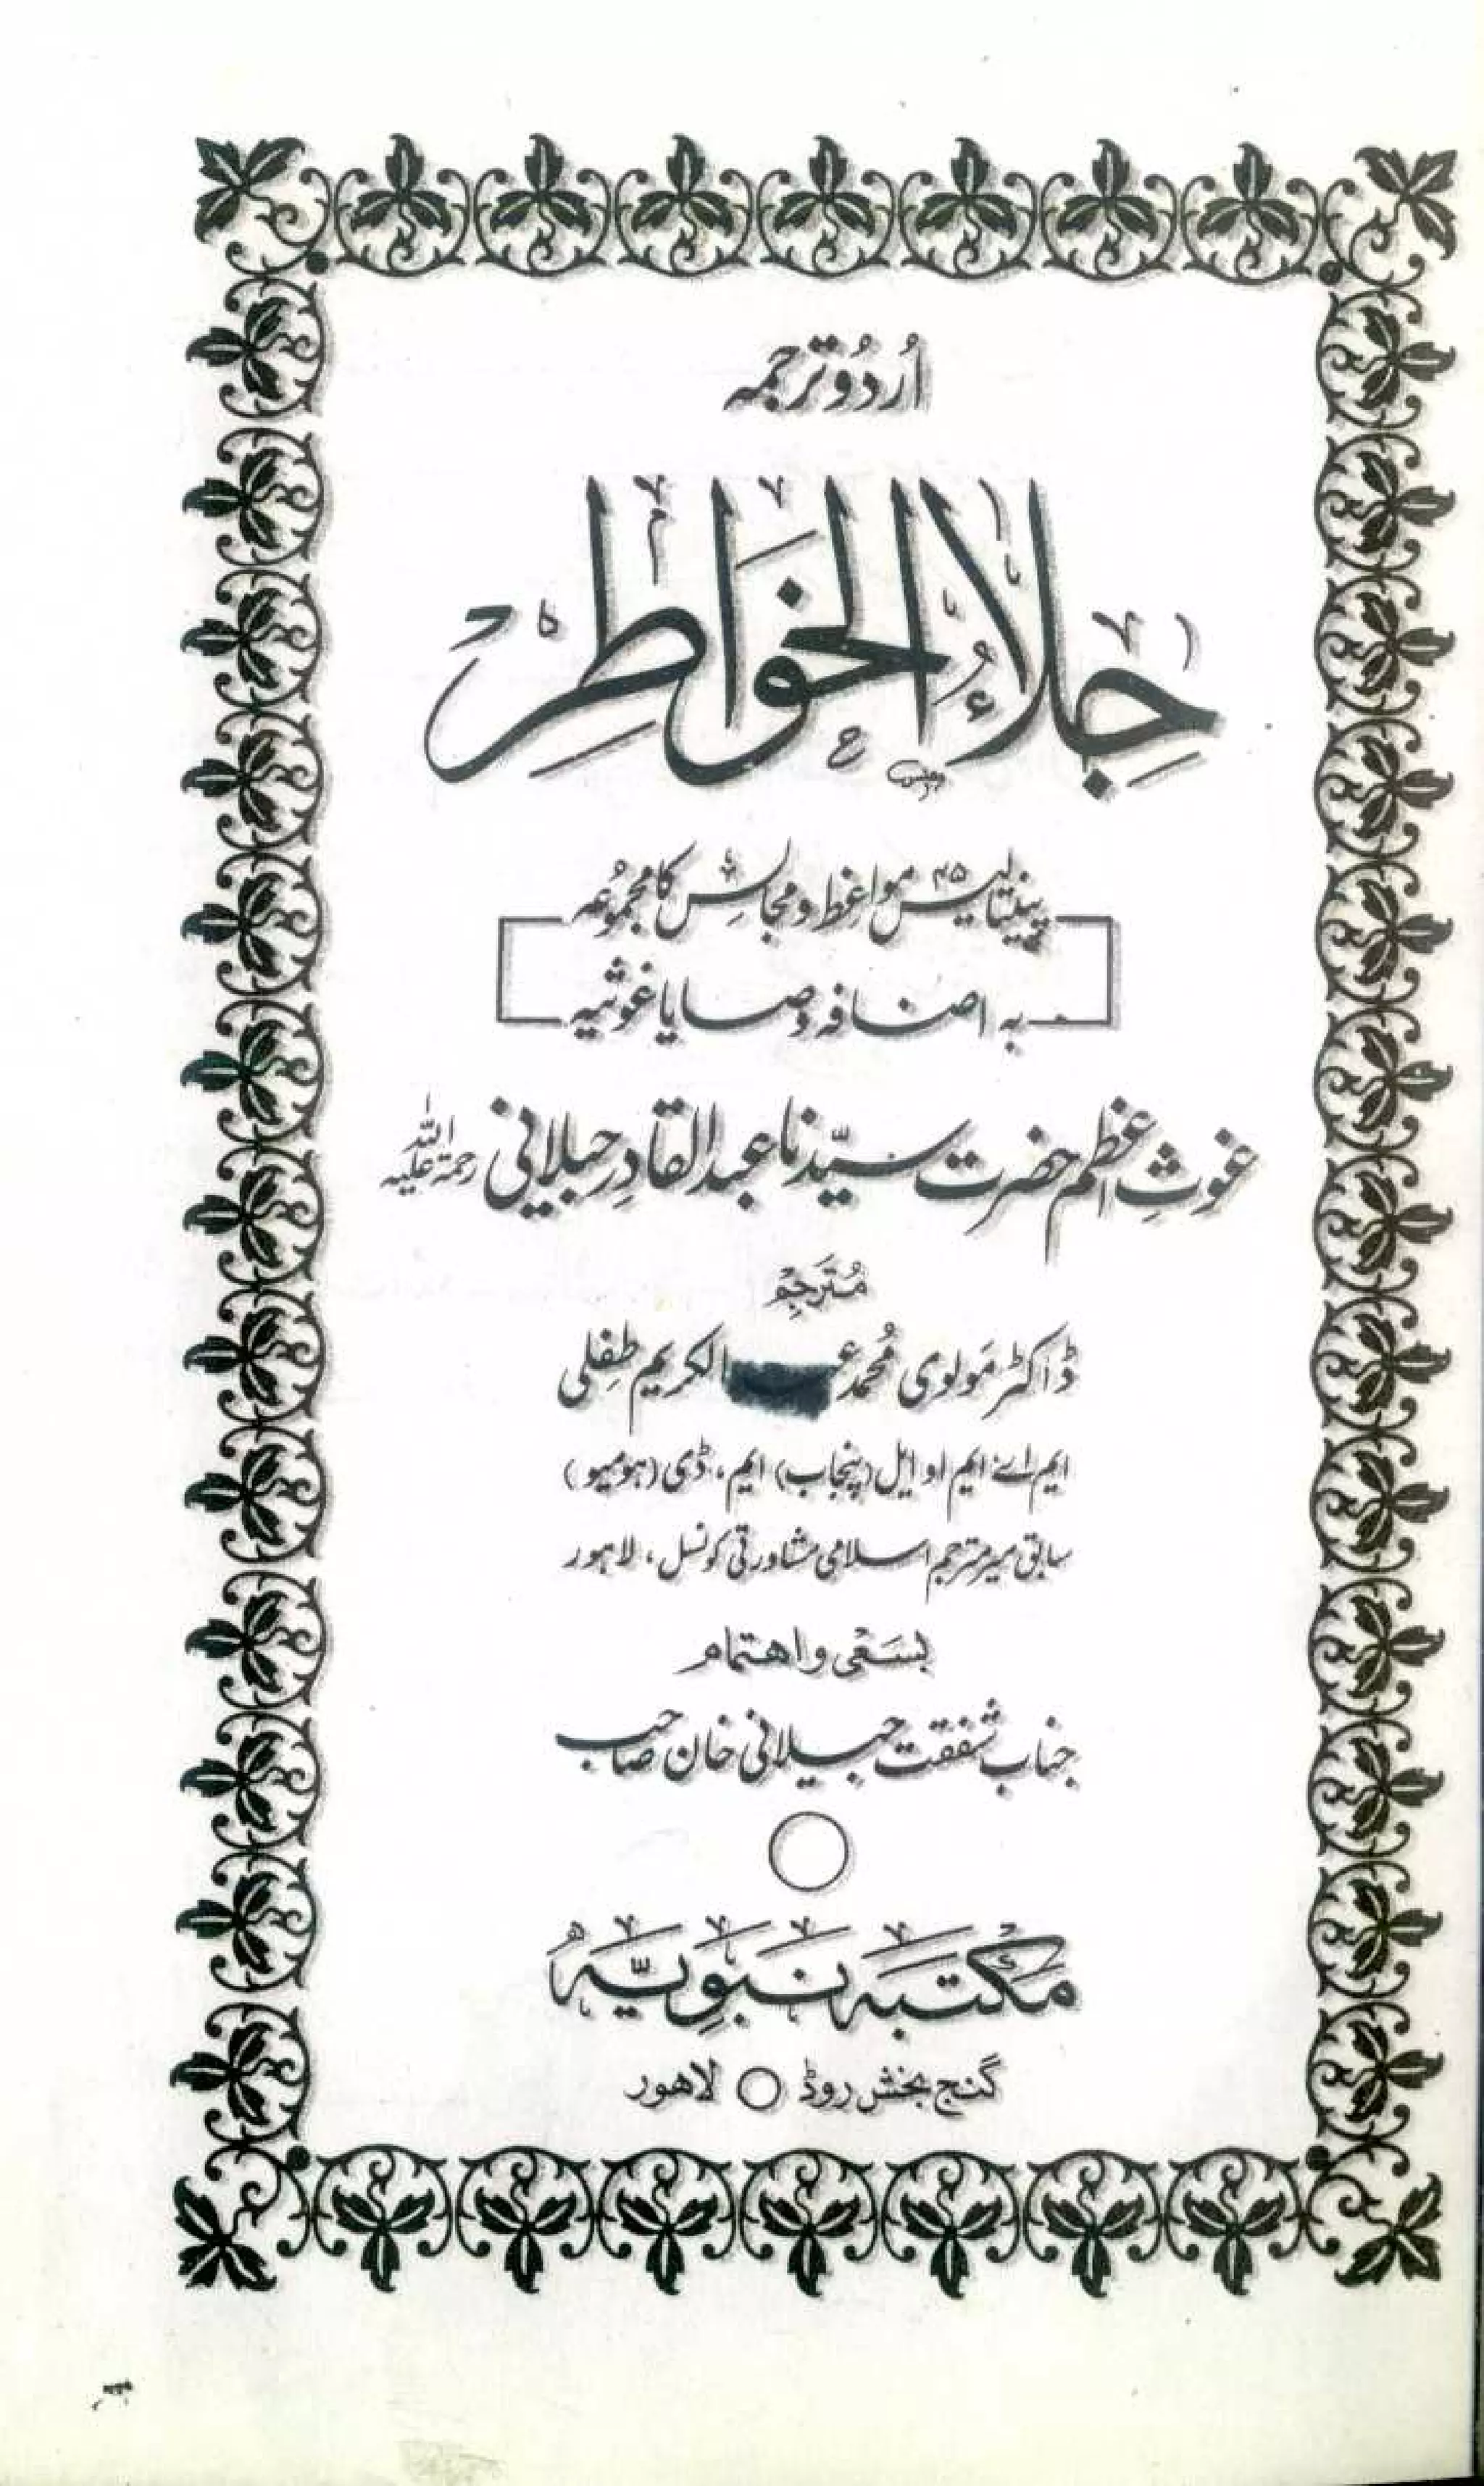 اُردُو ترجمہ
جِلاءُ الخَواطِر
پینتالیس ۴۵ مواعظ و مجالسِ کا مجمُوعہ
بہ اضافہ وصایا غوثیہ
غوثِ اعظم حضرت سیّدنا عبدالقادِر جیلانی رحمۃ اللہ علیہ
مُترَجِم
ڈاکٹر مَولوی مُحمد ع الکریم طِفلی
ایم اے، ایم او ایل (پنجاب) ایم، ڈی (ہومیو)
سابق میر مترجم اسلامی مشاورتی کونسل، لاہور
بسَعْی و اهتمام
جناب شفقت جیلانی خان صاحب
مَکتبَہ نَبَوِیَّہ
گنج بخش روڈ ○ لاهور